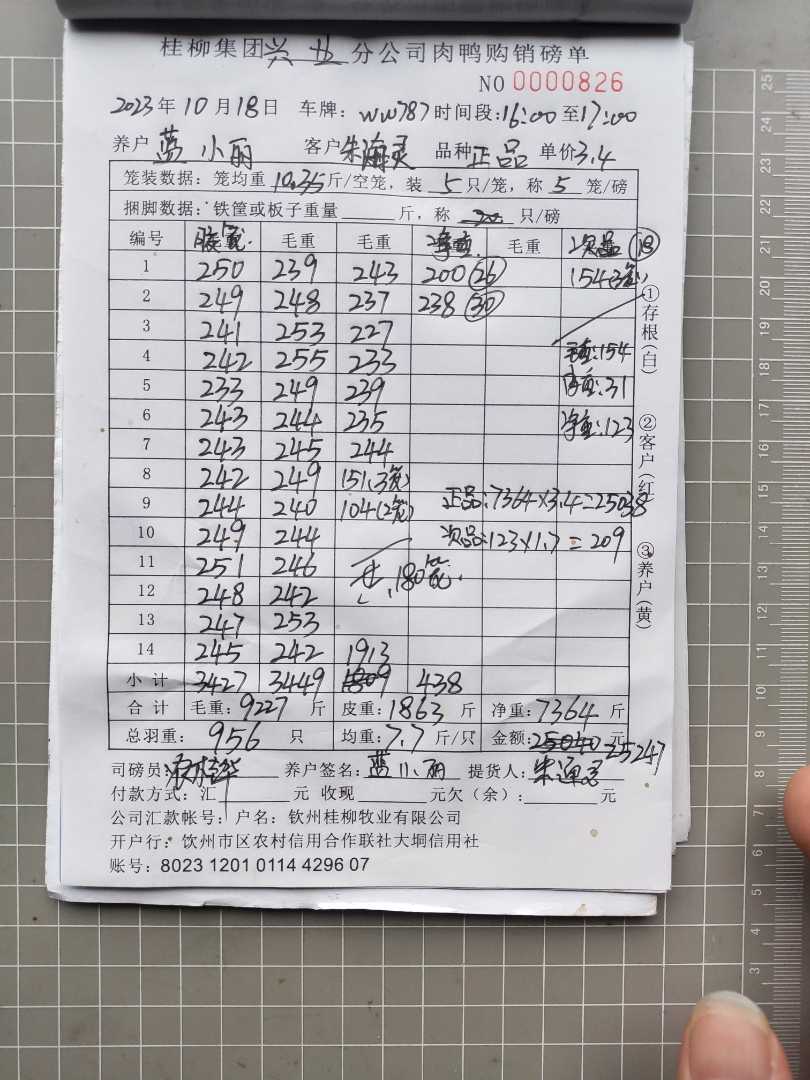 桂柳集团兴业分公司肉鸭购销磅单
NO 0000826
2023年10月18日 车牌:WW787 时间段:16:00至17:00
养户 蓝小丽 客户 朱海灵 品种 正品 单价3.4
笼装数据:笼均重10.35斤/空笼,装 5 只/笼,称 5 笼/磅
捆脚数据:铁筐或板子重量 斤,称 20 只/磅
编号 毛重 毛重 净重 毛重 次品 18
1 250 239 243 200 26 154(3笼)
2 249 248 237 238 30
3 241 253 227
4 242 255 233 毛重:154
5 233 249 239 皮重:31
6 243 244 235 净重:123
7 243 245 244
8 242 249 151(3笼)
9 244 240 104(2笼) 正品:7364×3.4=25038
10 249 244 次品:123×1.7=209
11 251 246 共180笼.
12 248 242
13 247 253
14 245 242 1913
小计 3427 3449 438
合计 毛重:9227 斤 皮重:1863 斤 净重:7364 斤
总羽重: 956 只 均重:7.7 斤/只 金额:25040 25247 元
司磅员: 养户签名:蓝小丽 提货人:朱海灵
付款方式:汇 元 收现 元欠(余): 元
公司汇款帐号:户名:钦州桂柳牧业有限公司
开户行:钦州市区农村信用合作联社大垌信用社
账号:8023 1201 0114 4296 07
①存根(白)
②客户(红)
③养户(黄)
25
24
23
22
21
20
19
18
17
16
15
14
13
12
11
10
9
8
7
6
5
4
3